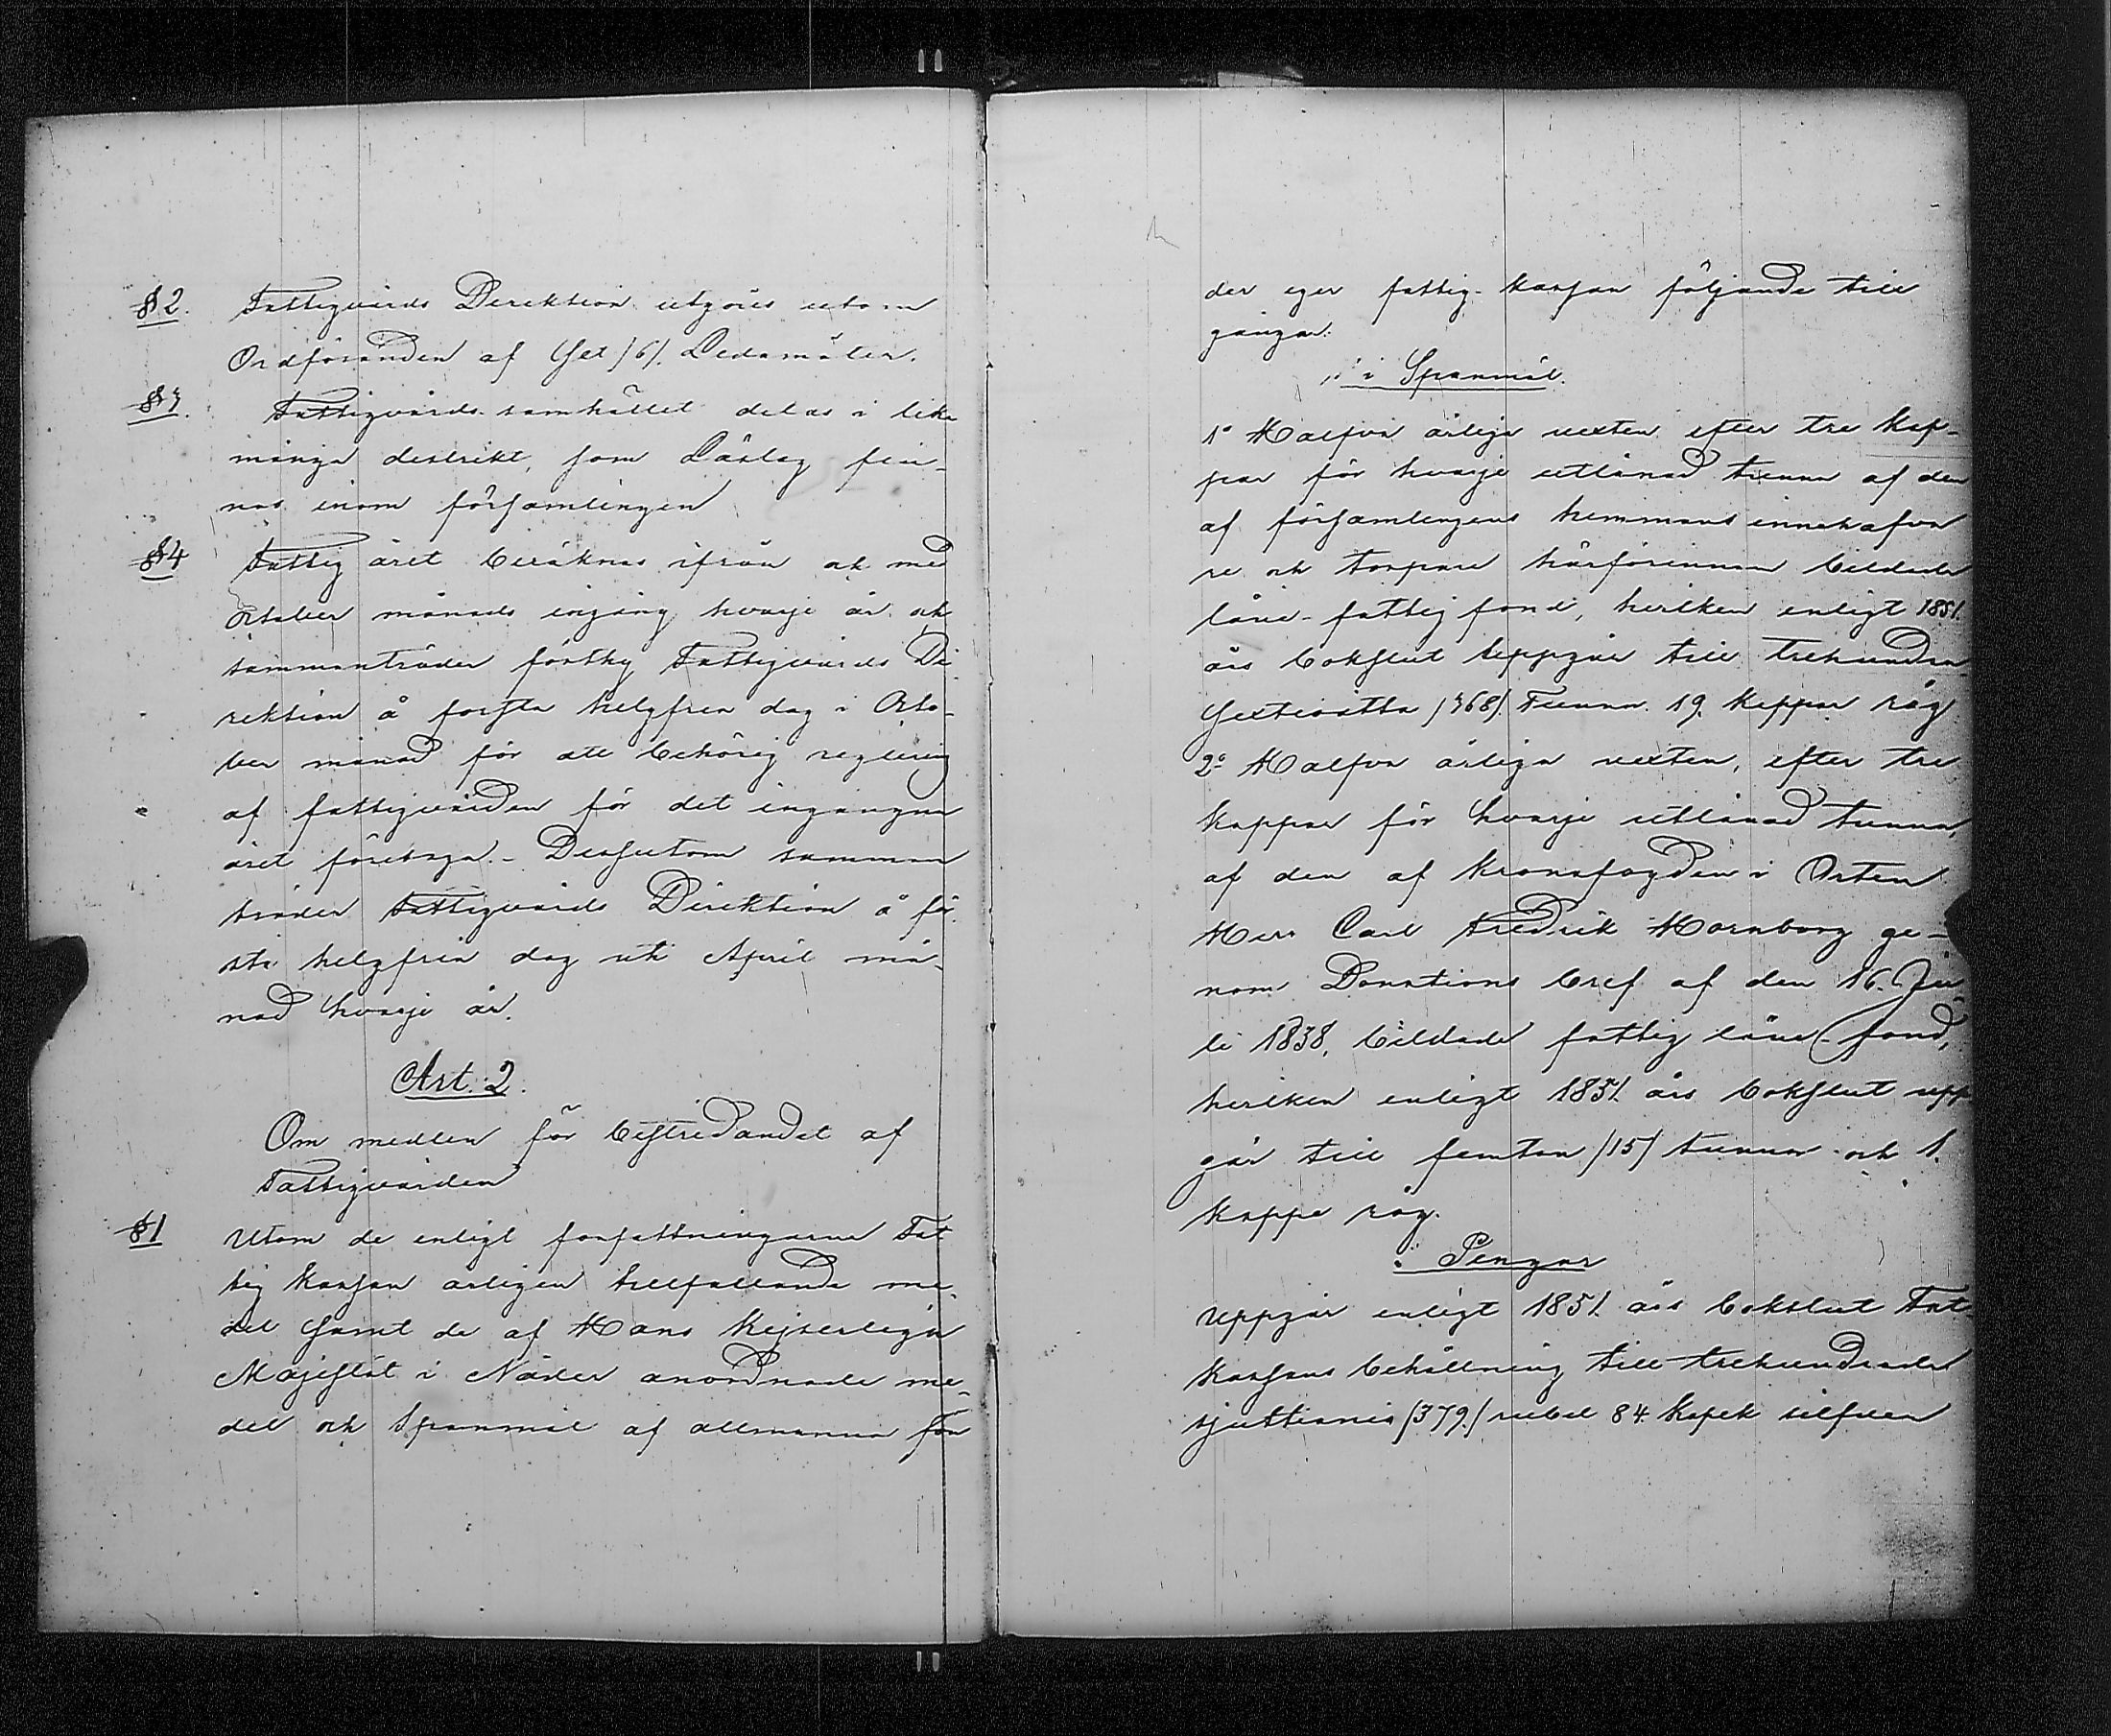 § 2. Fattigvårds Direktion utgöres utom
Ordföranden af Sex /6/. Ledamöter.
§ 3. Fattigvårds-samhället delas i lika
många distrikt, som Läslag fin-
nas inom församlingen
§ 4 Fattig året beräknas ifrån och med
October månads ingång hvarje år och
sammanträder förthy Fattigvårds Di-
rektion å första helgfria dag i Octo-
ber månad för att behörig reglering
af fattigvården för det ingångna
året företaga. - Dessutom samman
träder Fattigvårds Direktion å för-
sta helgfria dag uti April må-
nad hvarje år.
Art. 2.
Om medlen för bestridandet af
Fattigvården
§ 1 Utom de enligt författningarne Fat
tig kassan årligen tillfallande me-
del samt de af Hans Kejserliga
Majestät i Nåder anordnade me-
del och Spanmål af allmänna fon
der eger fattig-kassan följande till
gångar:
i Spanmål.
1° Halfva årliga rexten efter tre Kap-
par för hvarje utlånad tunna af den
af församlingens hemmans innehafva
re och torpare härförinnan bildade
låne-fattig fond, hvilken enligt 1851.
års bokslut uppgår till Trehundra
Sextioåtta /368/. Tunnor 19. kappar råg
2° Halfva årliga rexten, efter tre
kappar för hvarje utlånad tunna,
af den af Kronofogden i Orten
Herr Carl Fredrik Hornborg ge-
nom Donations bref af den 16. Ju
li 1838, bildade fattig låne-fond,
hvilken enligt 1851. års bokslut upp
går till femton /15/ tunnor och 1.
kappe råg.
i Pengar
Uppgår enligt 1851. års bokslut Fat-
kassans behållning till trehundrade
sjuttionio /379./ rubel 84. kopek silfver